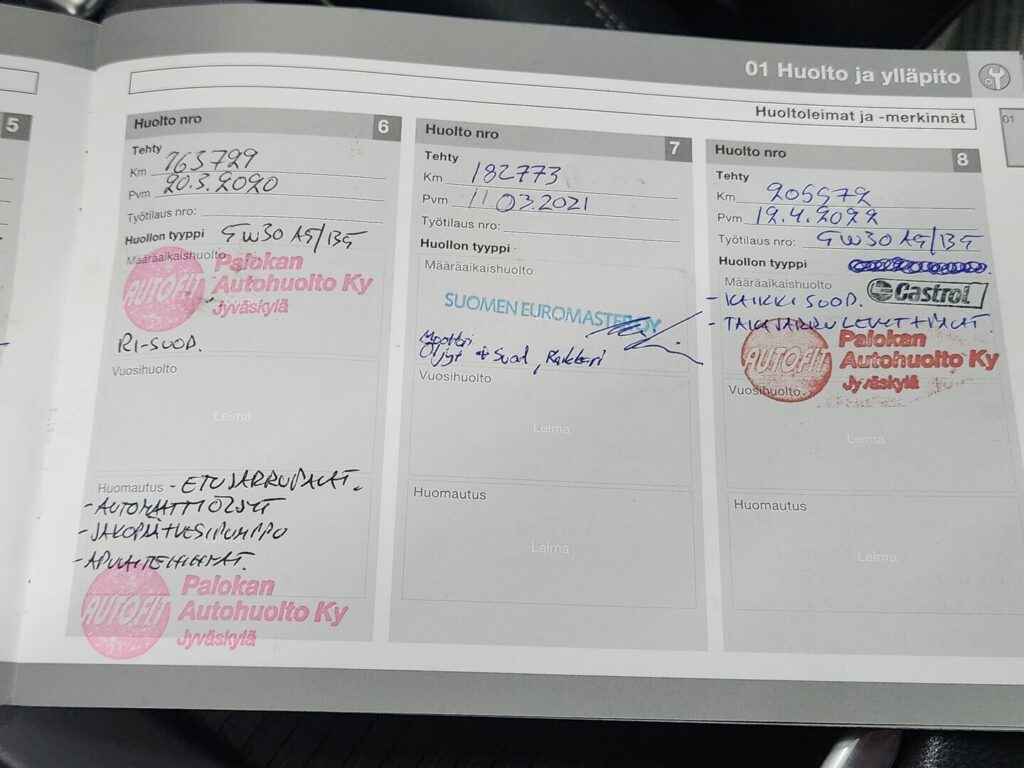 01 Huolto ja ylläpito
Huoltoleimat ja -merkinnät
01
5
Huolto nro 6
Tehty
Km 163729
Pvm 20.3.2020
Työtilaus nro:
Huollon tyyppi 5W30 A5/B5
Määräaikaishuolto
AUTOFIT
Palokan
Autohuolto Ky
Jyväskylä
RI-SUOD.
Vuosihuolto
Leima
Huomautus - ETUJARRUPALAT.
- AUTOMAATTIÖLJYT
- JAKOPÄÄ+VESIPUMPPU
- APULAITEHIHNAT.
AUTOFIT
Palokan
Autohuolto Ky
Jyväskylä
Huolto nro 7
Tehty
Km 182773
Pvm 11.03.2021
Työtilaus nro:
Huollon tyyppi
Määräaikaishuolto
SUOMEN EUROMASTER OY
Moottori
Öljyt + Suod, Raikkari
Vuosihuolto
Leima
Huomautus
Leima
Huolto nro 8
Tehty
Km 205572
Pvm 12.4.2022
Työtilaus nro: 5W30 A5/B5
Huollon tyyppi
Määräaikaishuolto
Castrol
- KAIKKI SUOD.
- TAKAJARRULEVYT+PALAT.
AUTOFIT
Palokan
Autohuolto Ky
Jyväskylä
Vuosihuolto
Leima
Huomautus
Leima